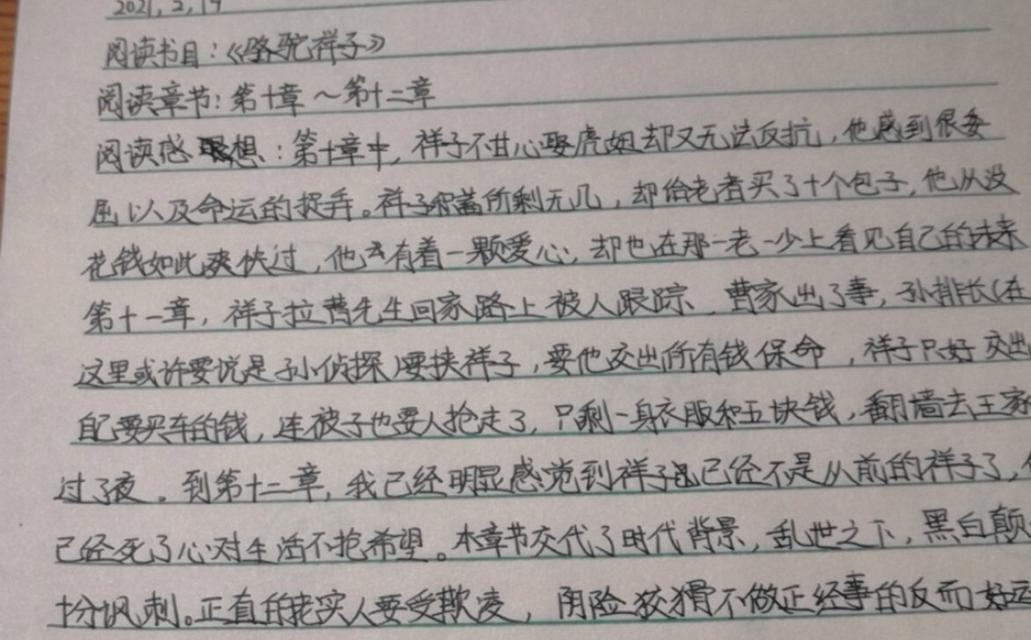 2021,2,19
阅读书目:《骆驼祥子》
阅读章节:第十章~第十二章
阅读感想:第十章中,祥子不甘心娶虎妞却又无法反抗,他感到很委
屈以及命运的捉弄。祥子所剩无几,却给老者买了十个包子,他从没
花钱如此爽快过,他有着一颗爱心,却也在那一老一少上看见自己的未来
第十一章,祥子拉曹先生回家路上被人跟踪,曹家出了事,孙排长(在
这里或许要说是孙侦探)要挟祥子,要他交出所有钱保命,祥子只好交出
自己要买车的钱,连被子也要人抢走了,只剩一身衣服和五块钱,翻墙去王家
过了夜。到第十二章,我已经明显感觉到祥子已经不是从前的祥子了,
已经死了心对生活不抱希望。本章节交代了时代背景,乱世之下,黑白颠
十分讽刺。正直的老实人要受欺凌,阴险狡猾不做正经事的反而好运